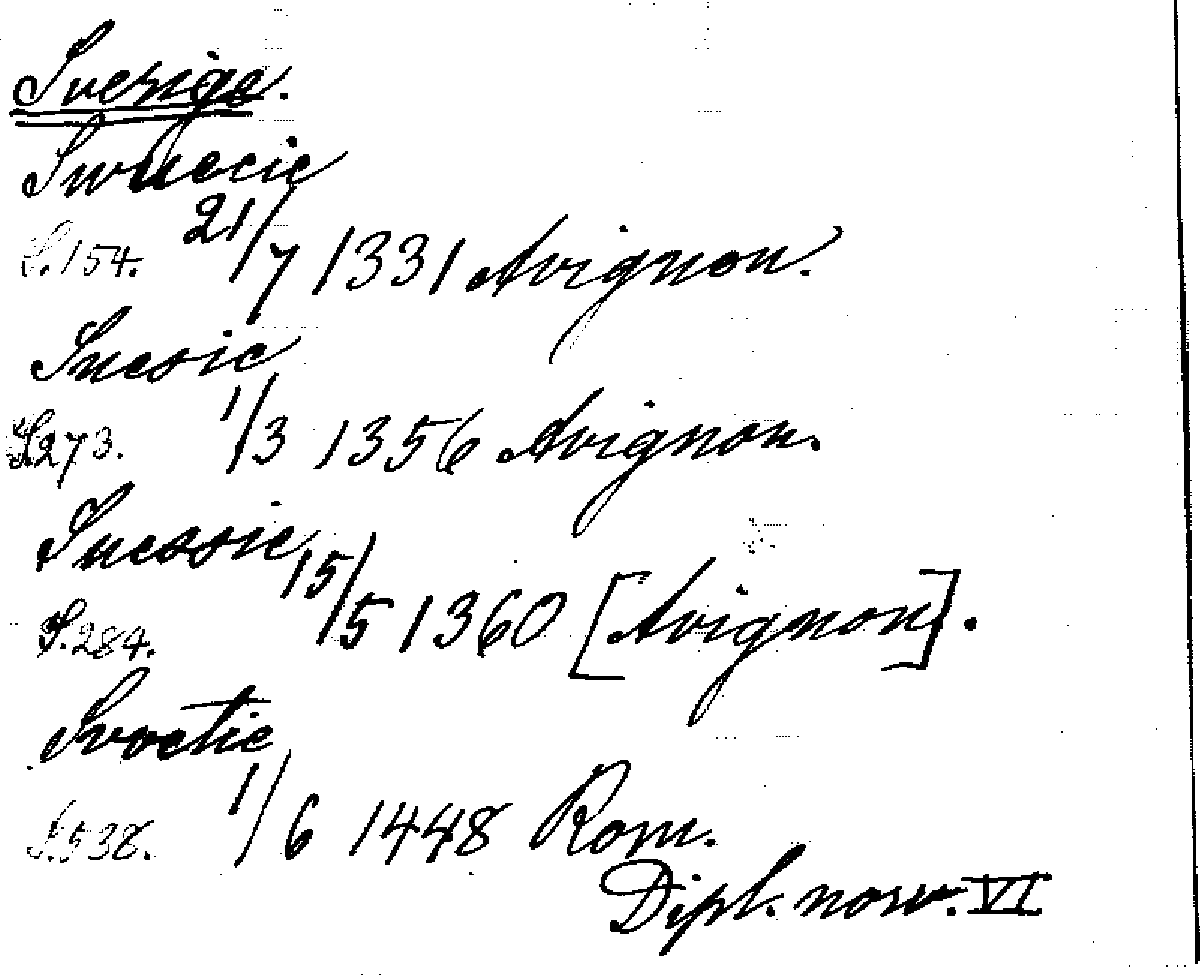 Sverige.
Swuecie
S. 154. 21/7 1331 Avignon.
Suesie
S. 273. 1/3 1356 Avignon.
Suessie
S. 284. 15/5 1360 [Avignon].
Svoetie
S. 538. 1/6 1448 Rom.
Dipl. norv. VI